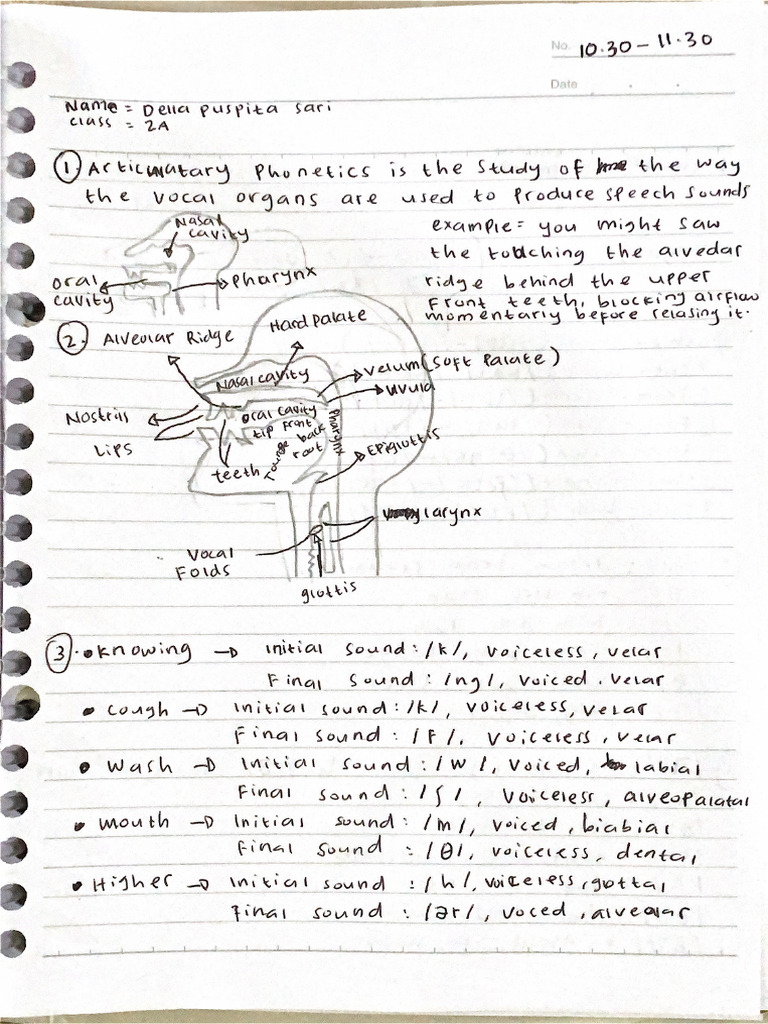 No. 10.30 – 11.30
Date
Name = Della puspita sari
Class = 2A
① Articulatary Phonetics is the study of the way
the vocal organs are used to produce speech sounds
Nasal
cavity
oral
cavity
Pharynx
example = you might saw
the touching the alvedar
ridge behind the upper
Front teeth, blocking airflow
momentarly before relasing it.
② Alveolar Ridge
Hard palate
Nasal cavity
velum (soft palate)
uvula
Nostrils
Lips
oral cavity
tip Front
back
root
Tounge
Pharynx
teeth
Epiglottis
larynx
Vocal
Folds
glottis
③ • knowing → Initial sound : /k/, voiceless, velar
Final sound : /ng/, voiced, velar
• cough → Initial sound : /k/, voiceless, velar
Final sound : /f/, voiceless, velar
• wash → Initial sound : /w/, voiced, labial
Final sound : /ʃ/, voiceless, alveopalatal
• mouth → Initial sound : /m/, voiced, biabial
Final sound : /θ/, voiceless, dental
• Higher → Initial sound : /h/, voiceless, gottal
Final sound : /ər/, voced, alveolar